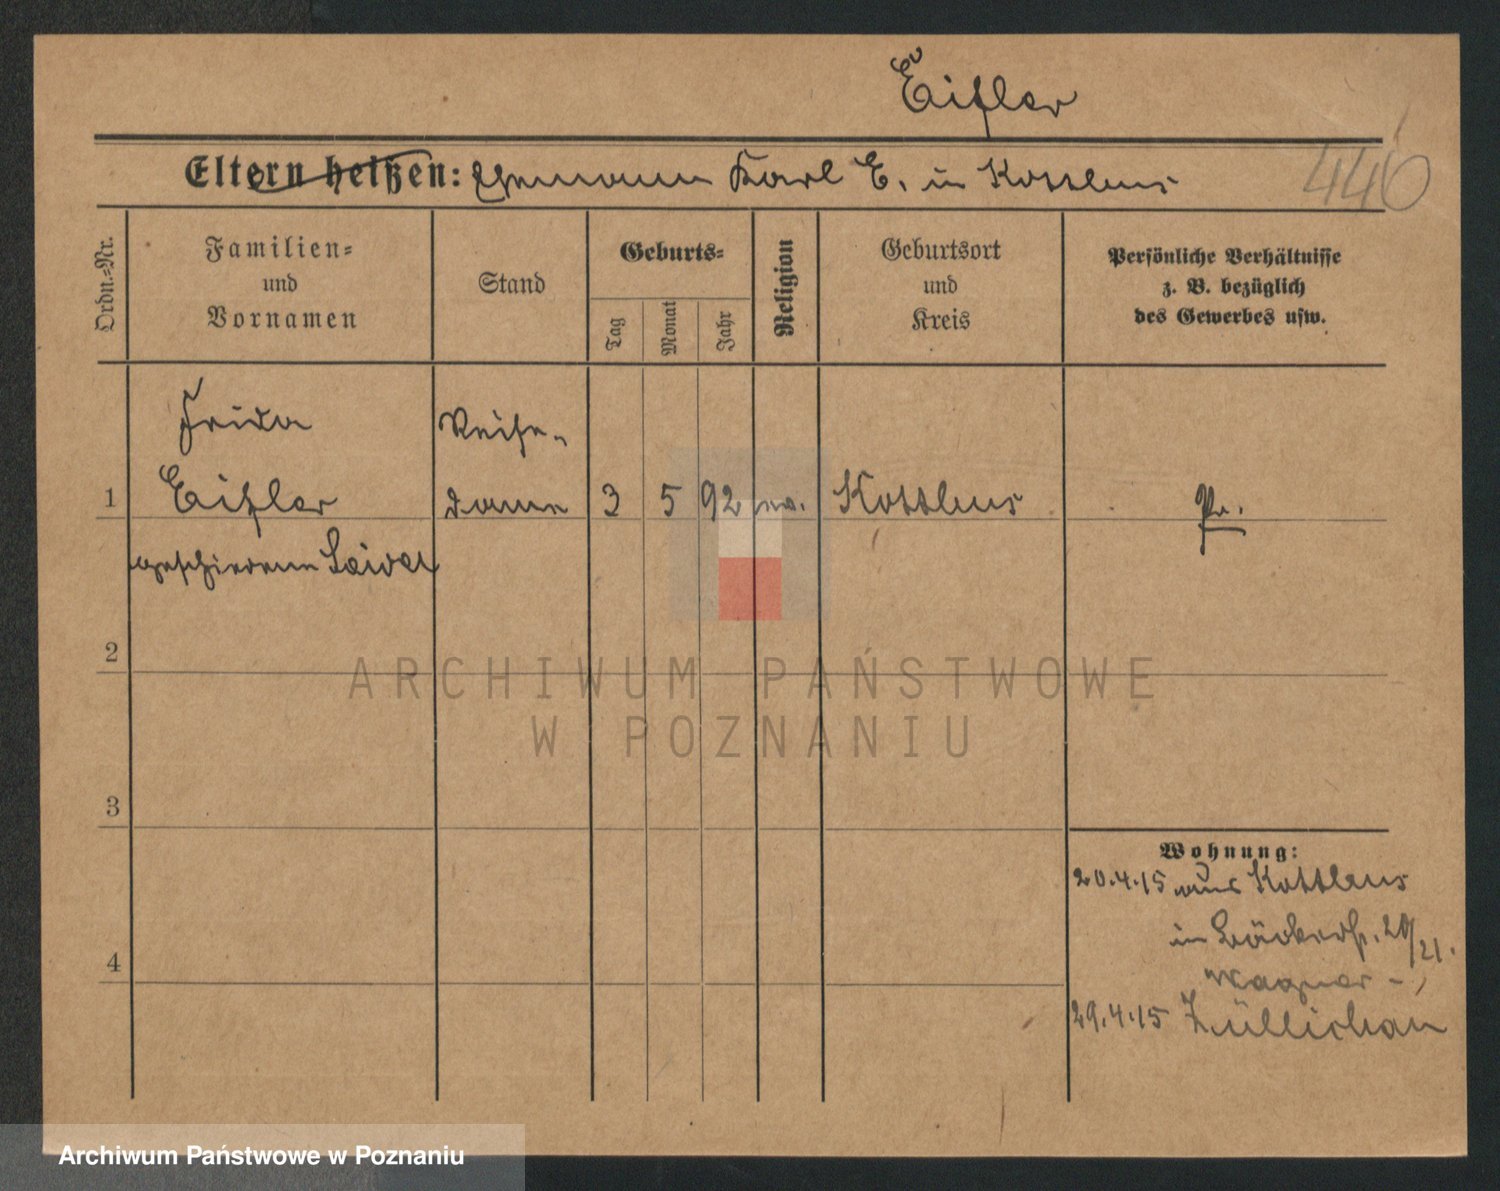 Eißler
Eltern heißen: Ehemann Karl E. in Kottbus
446
Ordn.=Nr.
Familien=
und
Vornamen
Stand
Geburts=
Tag
Monat
Jahr
Religion
Geburtsort
und
Kreis
Persönliche Verhältnisse
z. B. bezüglich
des Gewerbes usw.
Frida Reise-
1 Eißler dame 3 5 92 ev. Kottbus Pr.
geschiedene
2
3
4
Wohnung:
20.4.15 aus Kottbus
in Bäckerstr. 20/21.
Wagner -
29.4.15 Züllichau
ARCHIWUM PAŃSTWOWE
W POZNANIU
Archiwum Państwowe w Poznaniu